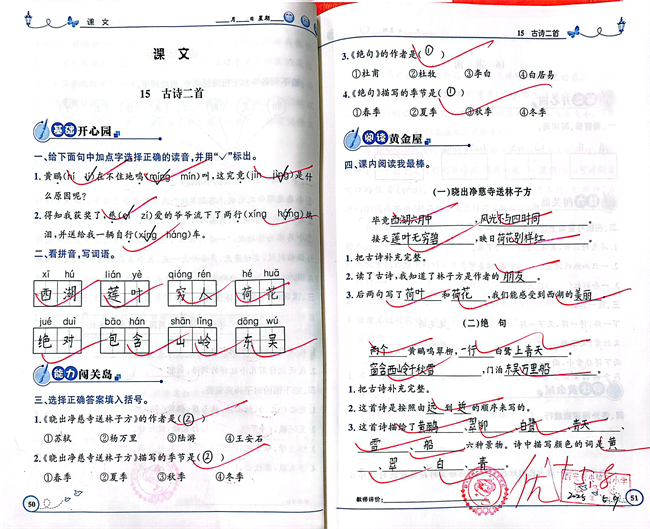 课 文
___月___日 星期___
课 文
15 古诗二首
基础 开心园
一、给下面句中加点字选择正确的读音,并用“✓”标出。
1. 黄鹂(hí lí)在不住地鸣(míng mín)叫,这究竟(jìn jìng)是什
么原因呢?
2. 得知我获奖了,慈(cí zí)爱的爷爷流下了两行(xíng háng)热
泪,并送给我一辆自行(xíng háng)车。
二、看拼音,写词语。
xī hú lián yè qióng rén hé huā
西湖 莲叶 穷人 荷花
jué duì bāo hán shān lǐng dōng wú
绝对 包含 山岭 东吴
能力 闯关岛
三、选择正确答案填入括号。
1.《晓出净慈寺送林子方》的作者是(②)
①苏轼 ②杨万里 ③陆游 ④王安石
2.《晓出净慈寺送林子方》描写的季节是(②)
①春季 ②夏季 ③秋季 ④冬季
50
15 古诗二首
3.《绝句》的作者是(①)
①杜甫 ②杜牧 ③李白 ④白居易
4.《绝句》描写的季节是(①)
①春季 ②夏季 ③秋季 ④冬季
阅读 黄金屋
四、课内阅读我最棒。
(一)晓出净慈寺送林子方
毕竟西湖六月中,风光不与四时同。
接天莲叶无穷碧,映日荷花别样红。
1. 把古诗补充完整。
2. 读了古诗,我知道了林子方是作者的朋友。
3. 后两句写了荷叶和荷花,我们能感受到西湖的美丽。
(二)绝 句
两个黄鹂鸣翠柳,一行白鹭上青天。
窗含西岭千秋雪,门泊东吴万里船。
1. 把古诗补充完整。
2. 这首诗是按照由远到近的顺序来写的。
3. 这首诗描绘了黄鹂、翠柳、白鹭、青天、
雪、船六种景物。诗中描写颜色的词是黄
、翠、白、青。
优
教师评价:
51